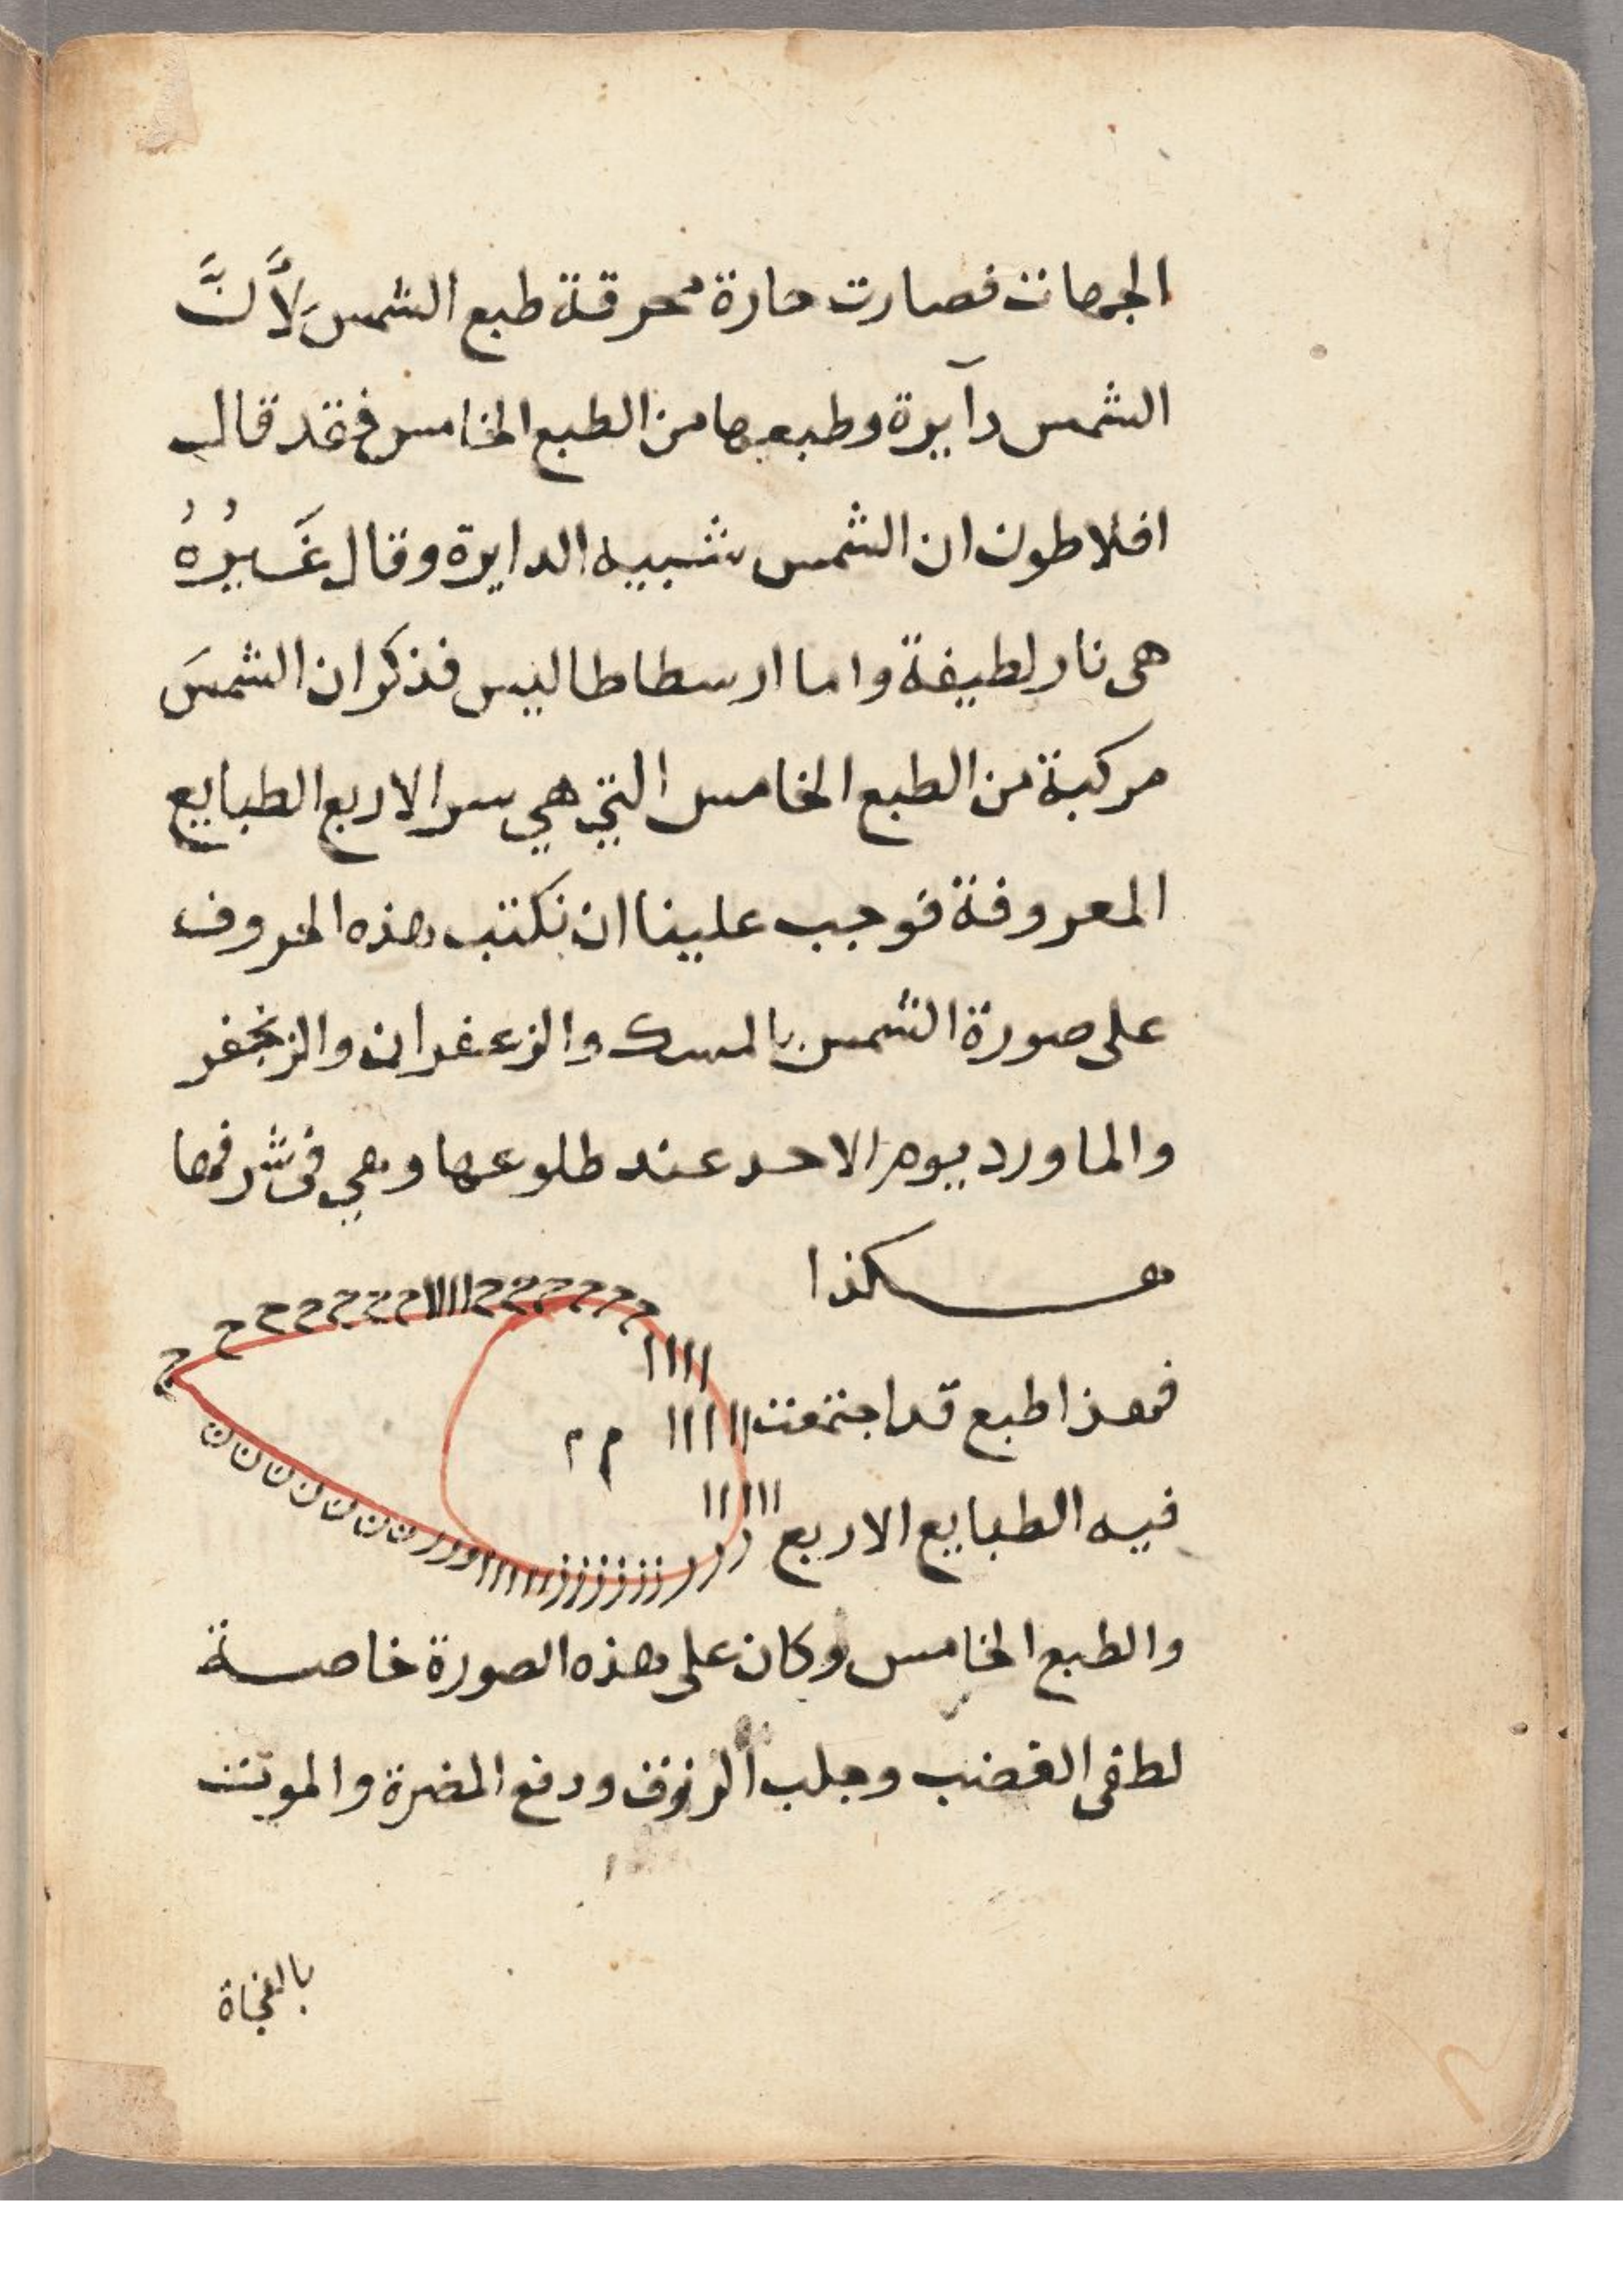 الجهات فصارت حارة محرقة طبع الشمس لَأَنَّ
الشمس دآيرة وطبعها من الطبع الخامس فقد قال
افلاطون ان الشمس شبيه الدايرة وقال غَيرُهُ
هى نار لطيفة واما ارسطاطاليس فذكر ان الشمسَ
مركبة من الطبع الخامس التي هي سر الاربع الطبايع
المعروفة فوجب علينا ان نكتب هذه الحروف
على صورة الشمس بالمسك والزعفران والزنجفر
والماورد يوم الاحد عند طلوعها وهي فى شرفها
هكذا
ح ح ح ح ح ح ح ح ااااا ح ح ح ح ح ح
اااا
فهذا طبع قد اجتمعت
اااااا
م م
اااااا
فيه الطبايع الاربع
ن ن ن ن ن ن ن ر ر ر و ااااااا ز ز ز ز ز ز ر ر ر ز
والطبع الخامس وكان على هذه الصورة خاصة
لطفى الغضب وجلب الرزوق ودفع المضرة والموت
بالفجاة